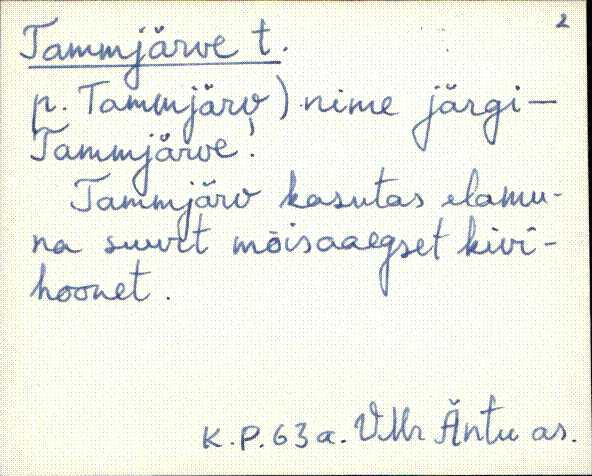 2
Tammjärve t.
p. Tammjärv) nime järgi —
Tammjärve!
Tammjärv kasutas elamu-
na suurt mõisaaegset kivi-
hoonet.
K.P. 63 a. VMr Äntu as.